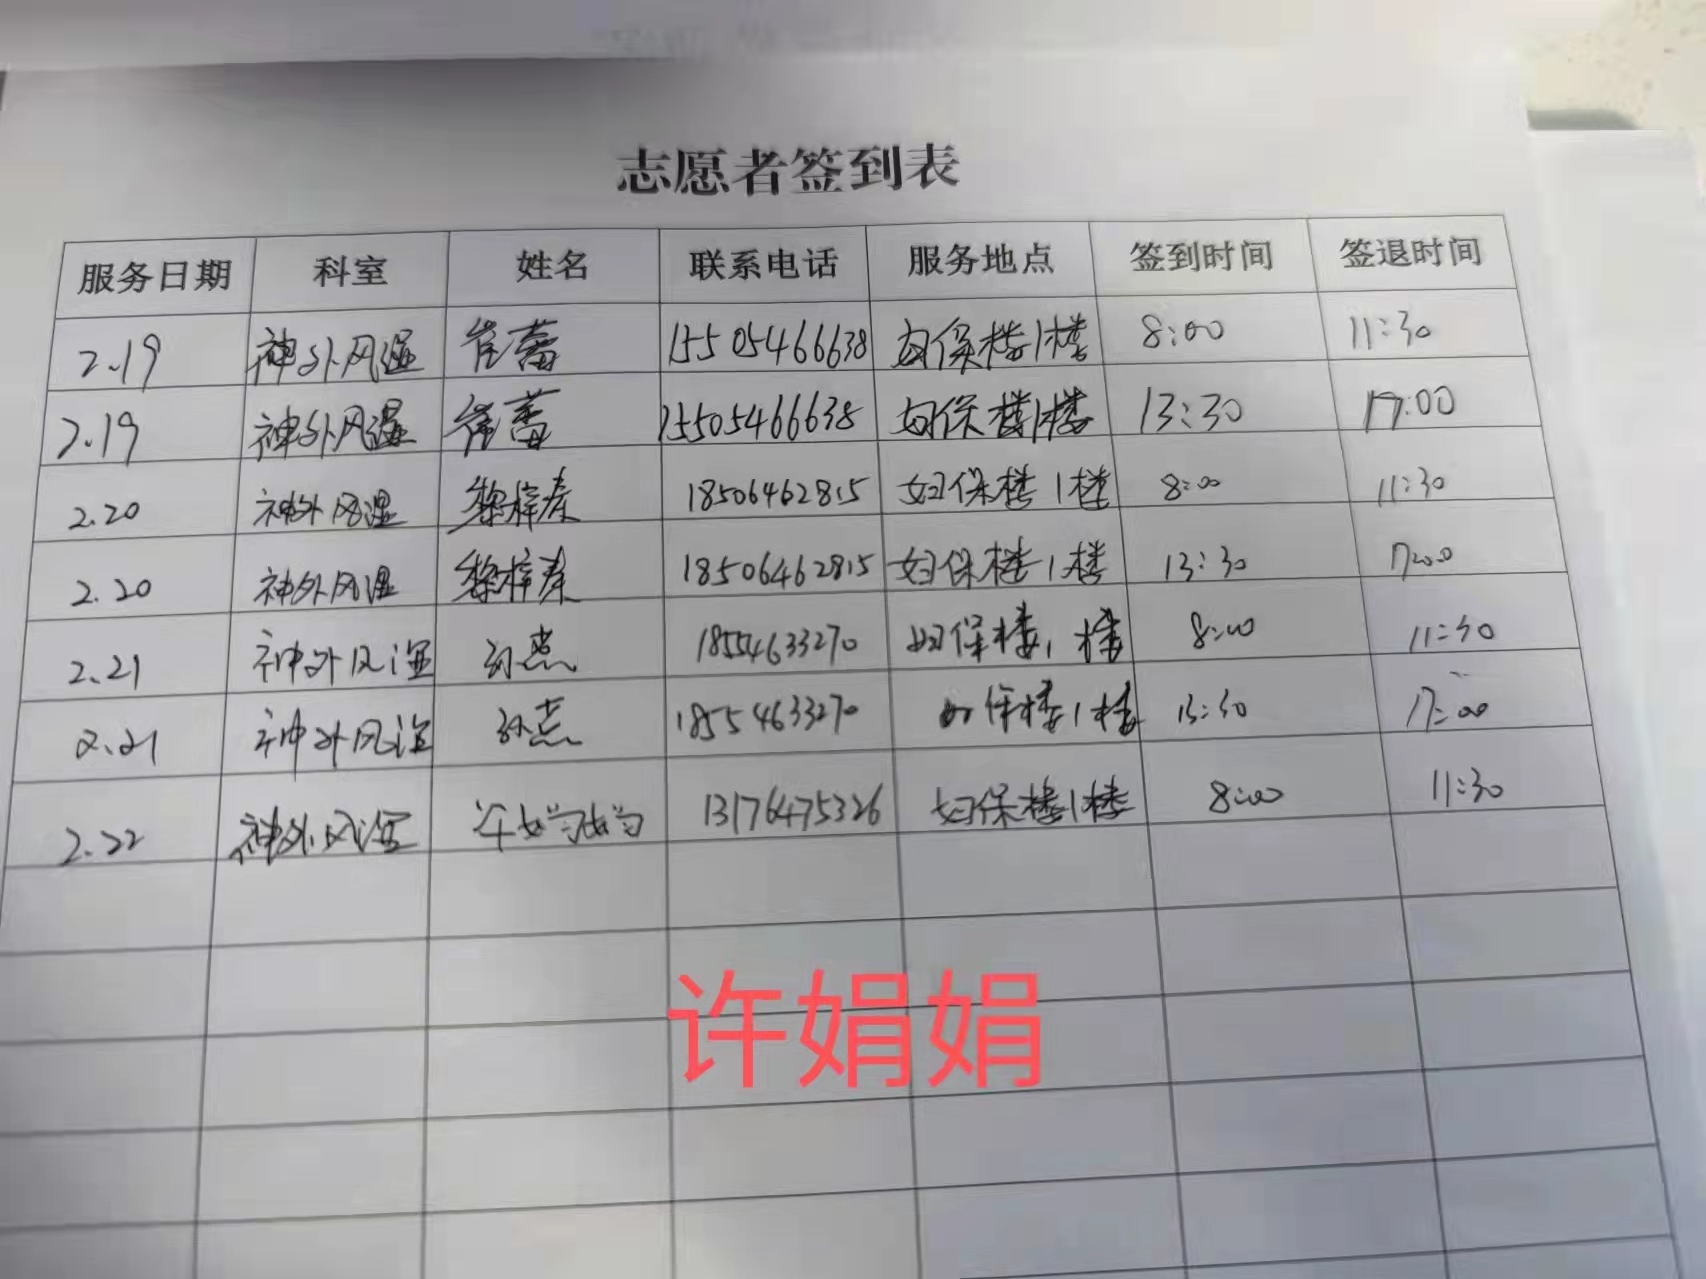 志愿者签到表
服务日期 科室 姓名 联系电话 服务地点 签到时间 签退时间
2.19 神外风湿 崔蕾 15505466638 妇保楼1楼 8:00 11:30
2.19 神外风湿 崔蕾 15505466638 妇保楼1楼 13:30 17:00
2.20 神外风湿 黎梓秦 18506462815 妇保楼1楼 8:00 11:30
2.20 神外风湿 黎梓秦 18506462815 妇保楼1楼 13:30 17:00
2.21 神外风湿 18554633270 妇保楼1楼 8:00 11:30
2.21 神外风湿 18554633270 妇保楼1楼 13:30 17:00
2.22 神外风湿 许娟娟 13176475326 妇保楼1楼 8:00 11:30
许娟娟